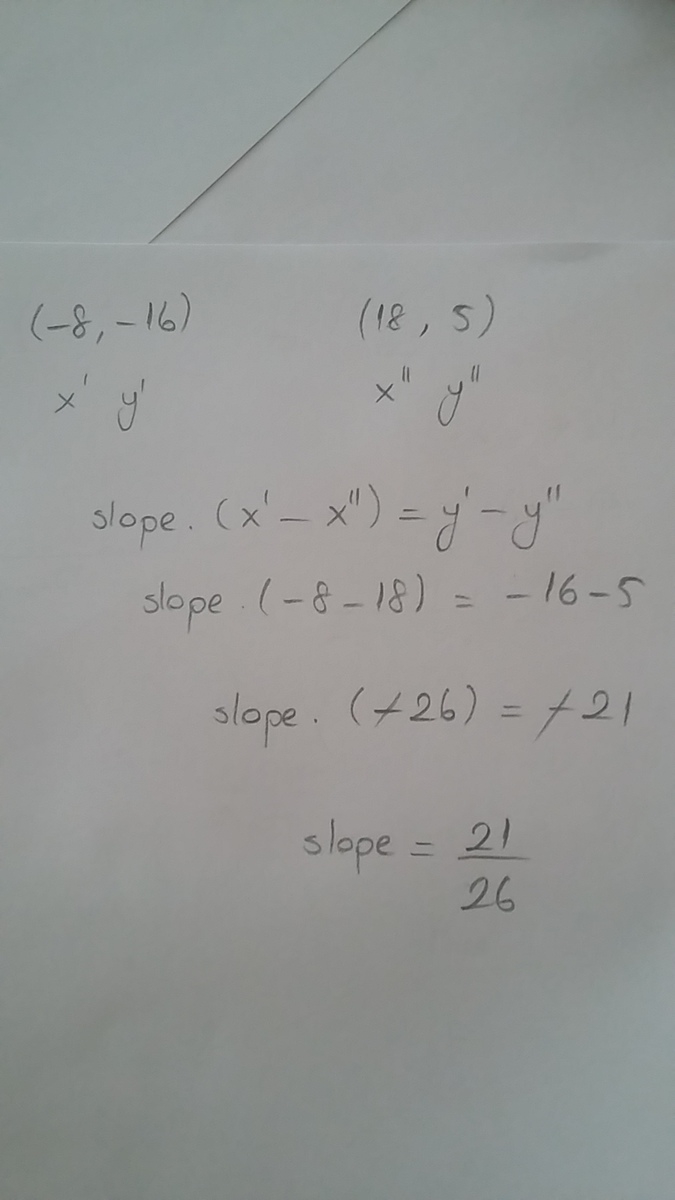 (-8, -16) (18, 5)
x' y' x" y"
slope. (x' - x") = y' - y"
slope. (-8 - 18) = -16 - 5
slope. (-26) = -21
slope = 21/26